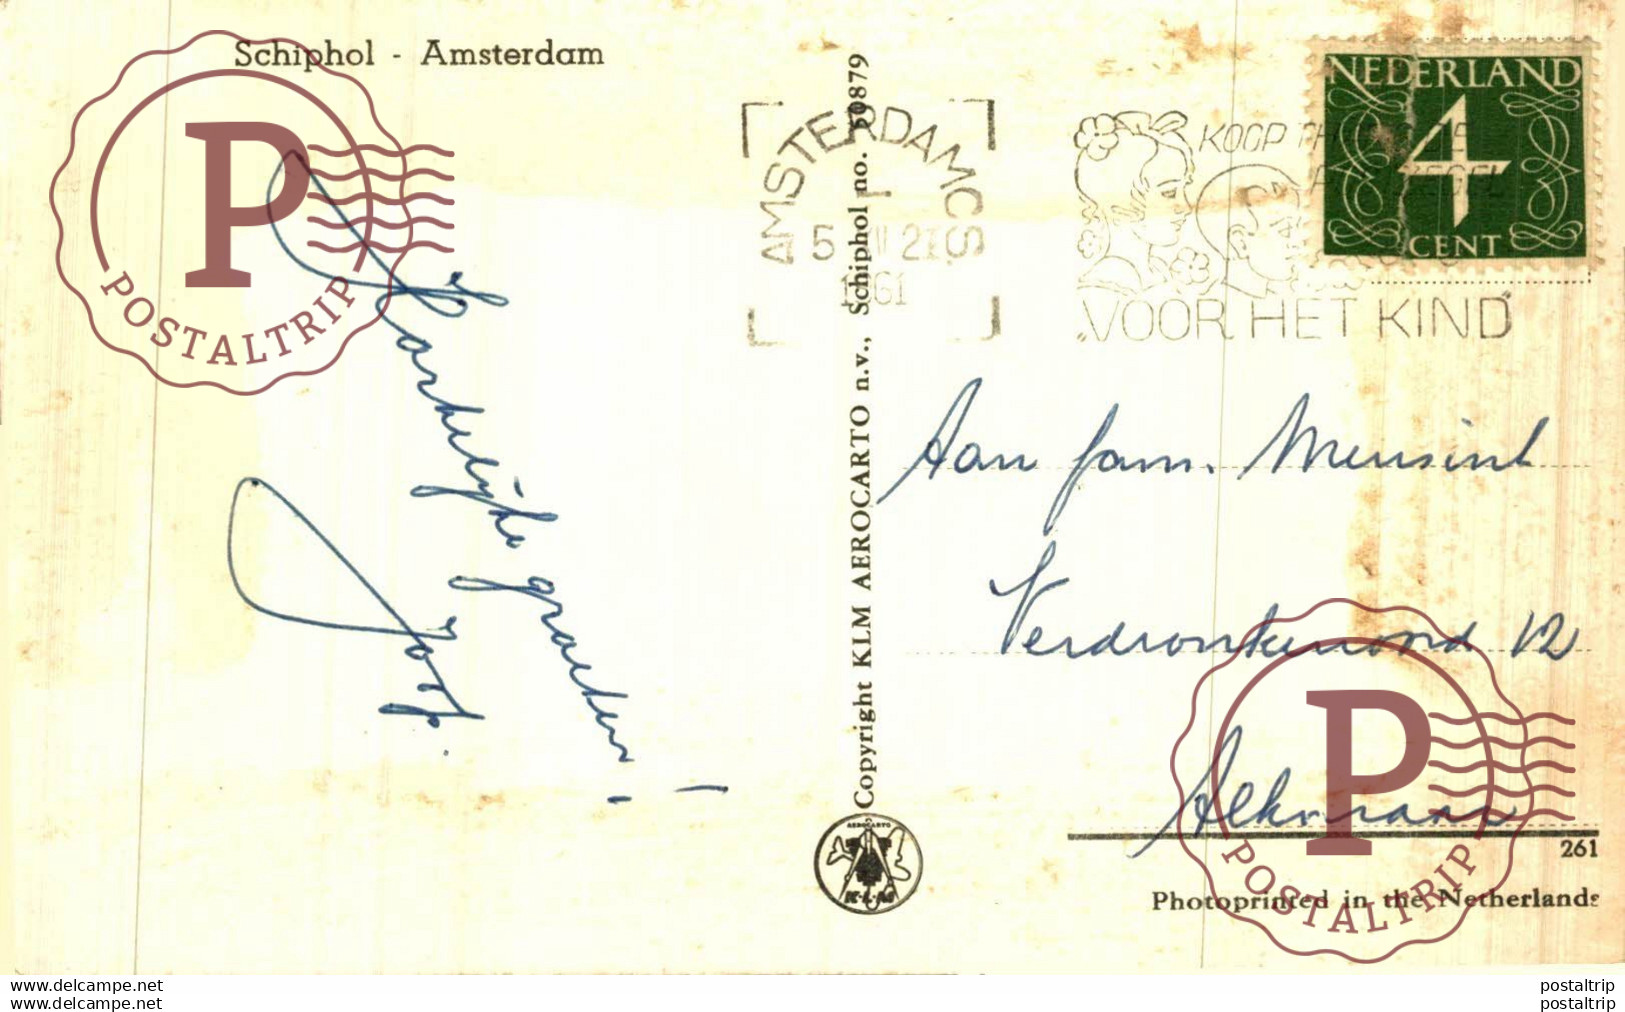 Schiphol - Amsterdam
Hartelijke groeten!
Joop.
Copyright KLM AEROCARTO n.v., Schiphol no. 50879
AEROCARTO
K·L·M
AMSTERDAM C.S.
5 2I
1961
KOOP
"VOOR HET KIND"
NEDERLAND
4
CENT
Aan fam. Mensink
Verdronkenoord 12
Alkmaar
261
Photoprinted in the Netherlands
P
POSTALTRIP
P
POSTALTRIP
www.delcampe.net
www.delcampe.net
postaltrip
postaltrip